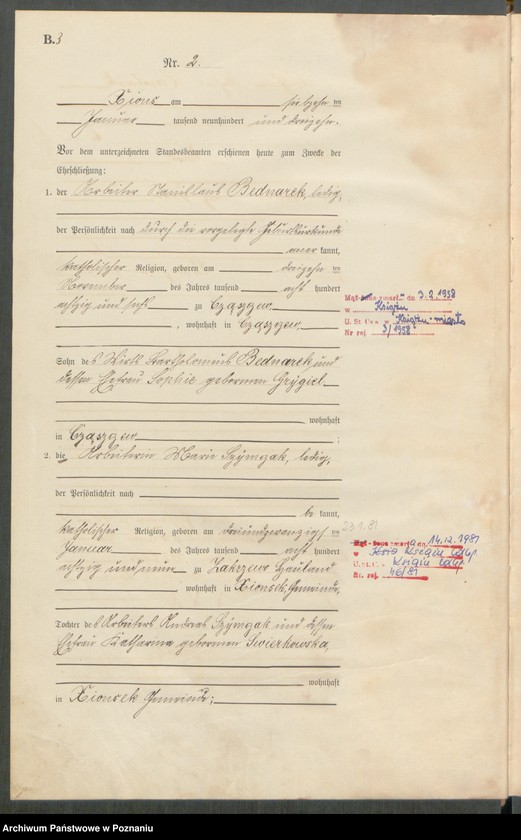 B.3
Nr. 2.
Xions am siebzehn ten
Januar tausend neunhundert und dreizehn.
Vor dem unterzeichneten Standesbeamten erschienen heute zum Zwecke der
Eheschließung:
1. der Arbeiter Stanislaus Bednarek, ledig,
der Persönlichkeit nach durch die vorgelegte Geburtsurkunde
aner kannt,
katholischer Religion, geboren am dreizehn ten
November des Jahres tausend acht hundert
achtzig und sechs zu
, wohnhaft in
Sohn des Wirts Bartholomäus Bednarek und
dessen Ehefrau Sophie geborenen Grygiel
wohnhaft
in ;
2. die Arbeiterin Marie Szymczak, ledig,
der Persönlichkeit nach
be kannt,
katholischer Religion, geboren am dreiundzwanzigs ten 23.1.89
Januar des Jahres tausend acht hundert
achtzig und neun zu Zakrzew Hauland
, wohnhaft in Xionsek, Gemeinde,
Tochter des Arbeiters Andreas Szymczak und dessen
Ehefrau Katharina geborenen Swierkowska,
wohnhaft
in Xionsek Gemeinde;
dn 3.2.1958
w Książu
U. St. C. w Książu-miasto
Nr rej. 3/1958
dn 14.12.1981
w Książu Wlkp.
U.St.C. Książ Wlkp.
Nr. rej. 46/81
Archiwum Państwowe w Poznaniu